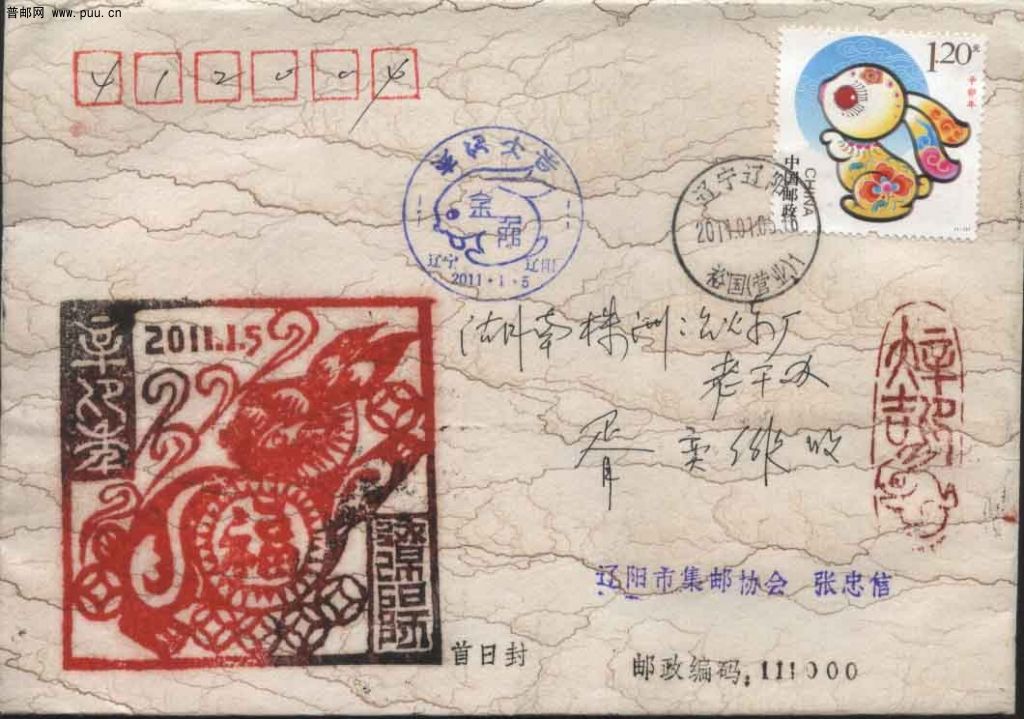 普邮网 www.puu.cn
412004
1.20元
辛卯年
中国邮政
CHINA
辛卯大吉
金
辽宁 辽阳
2011·1·5
辽宁辽阳
2011.01.05.16
(营业)1
2011.1.5
辛卯年
福
湖南株洲冶炼厂
老干办
收
辛卯
大吉
辽阳市集邮协会 张忠信
首日封
邮政编码:111000